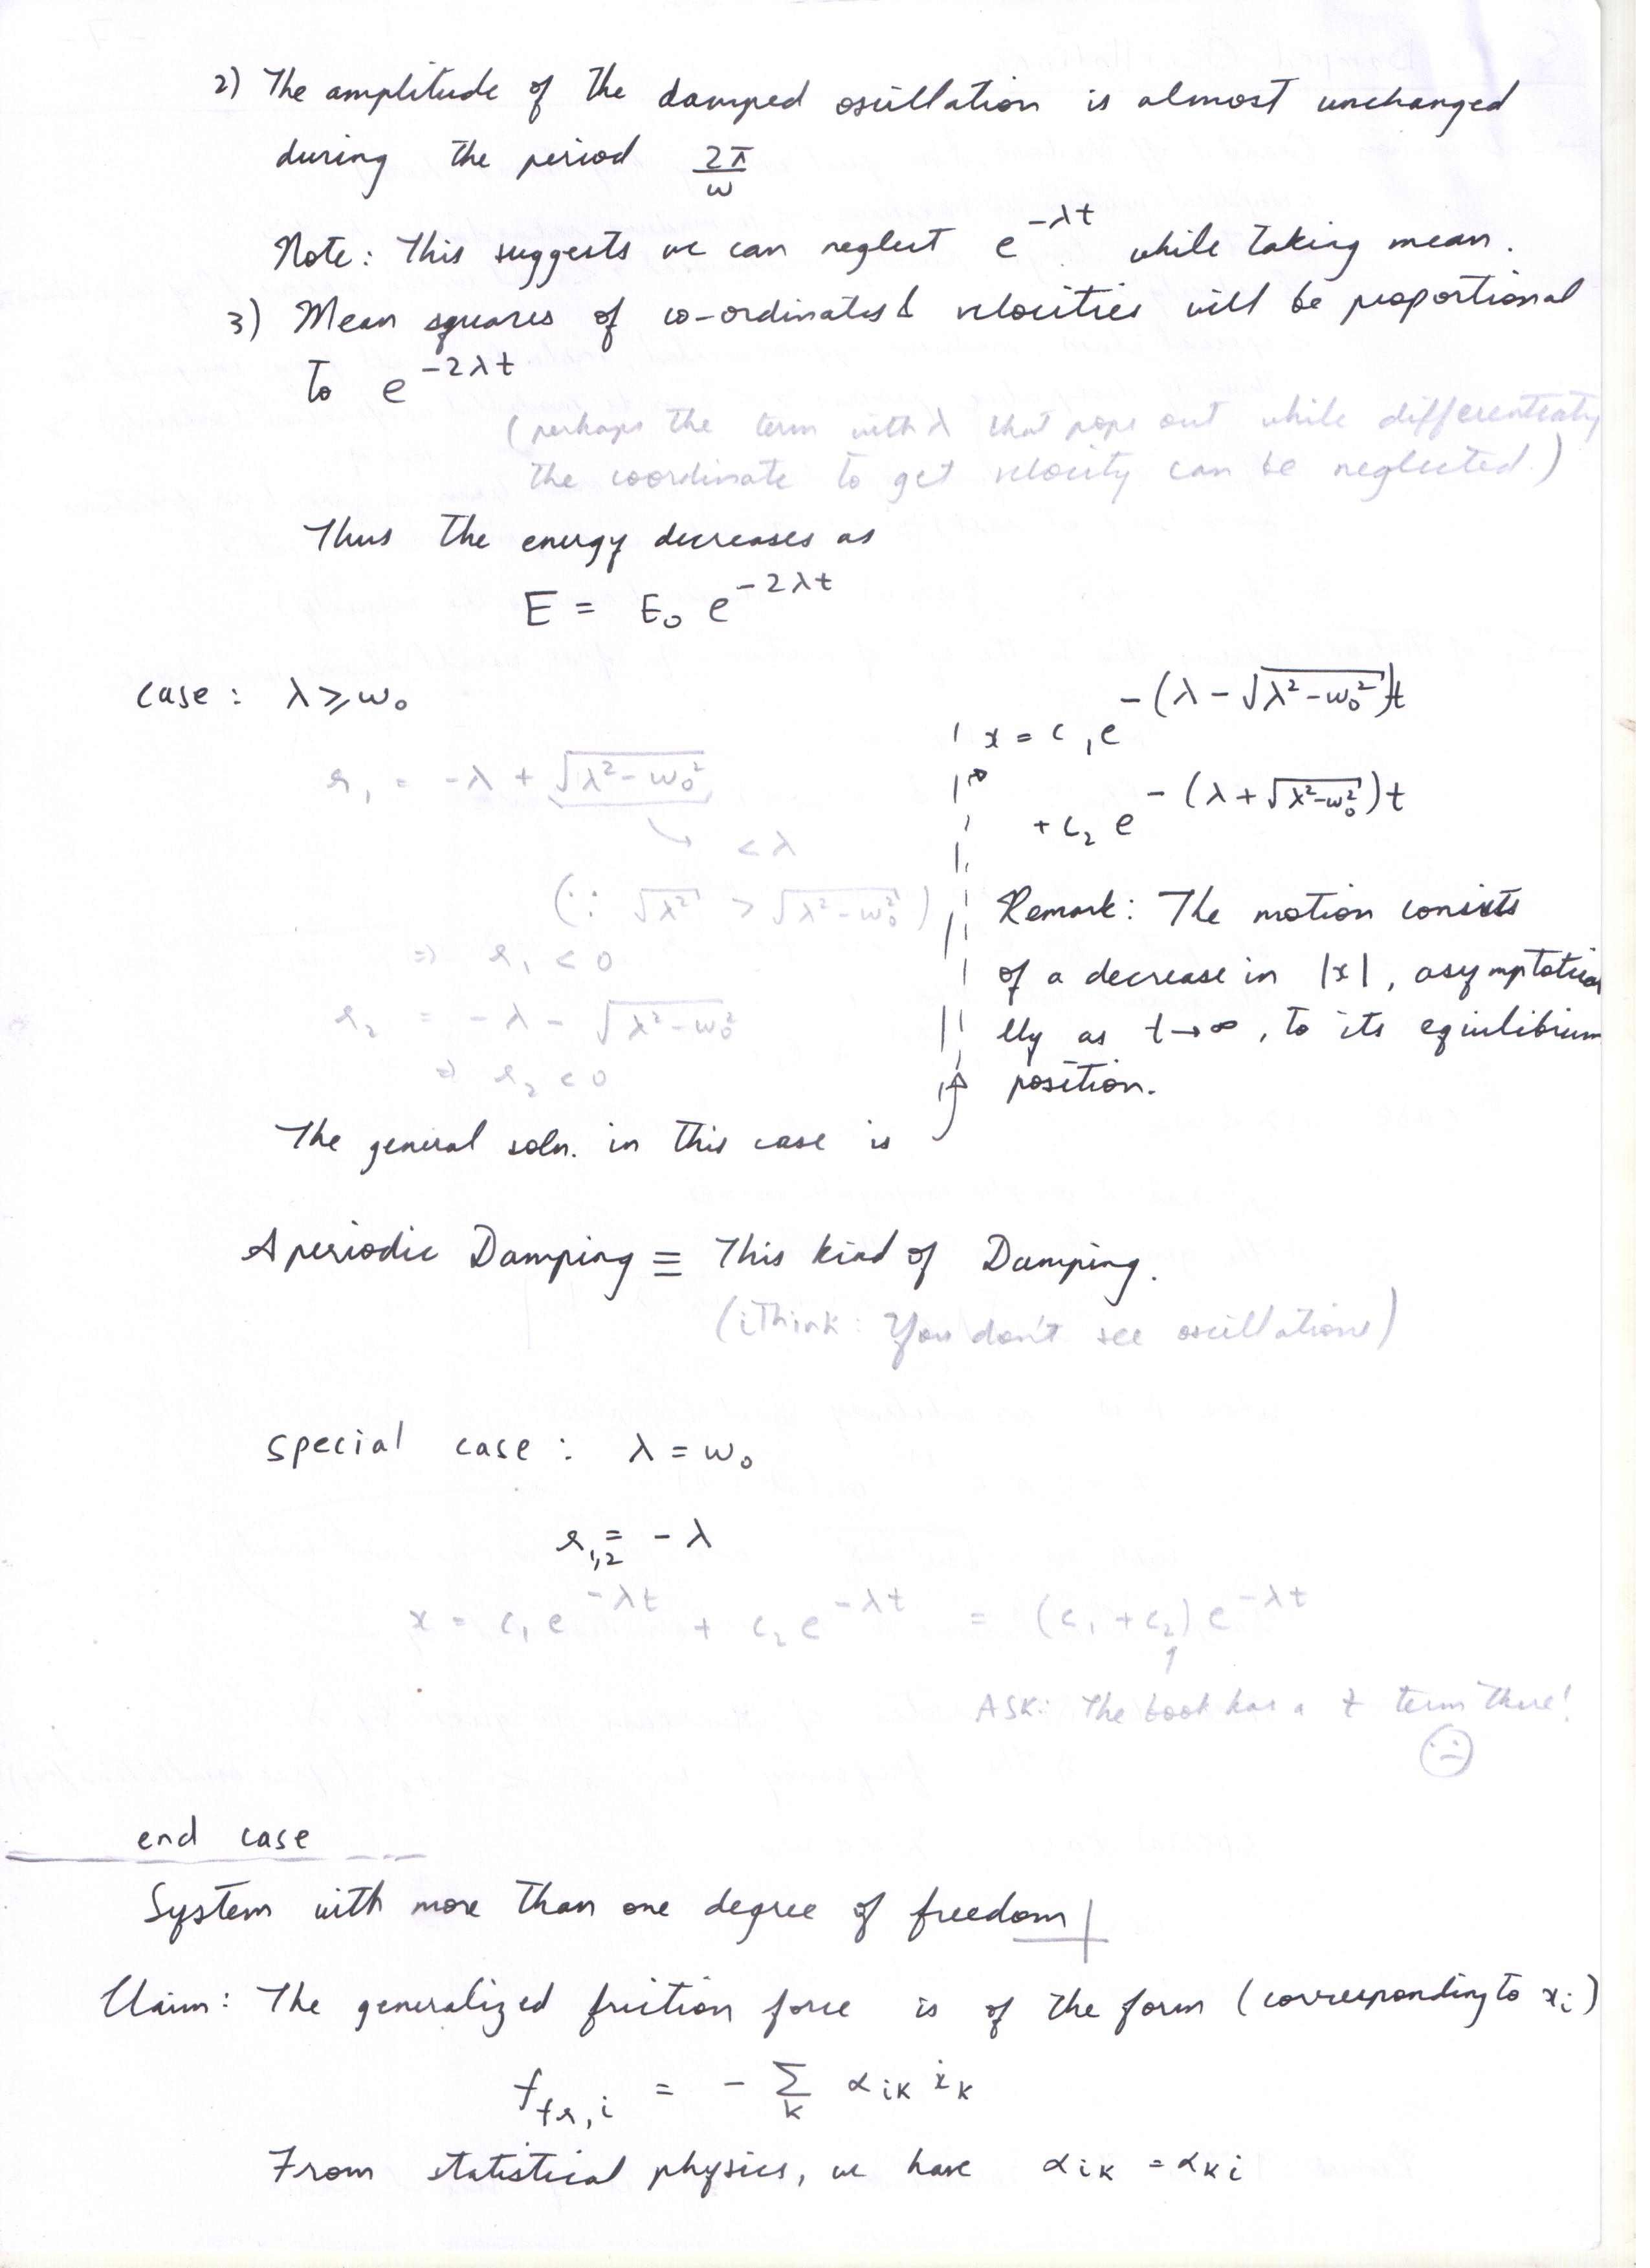 2) The amplitude of the damped oscillation is almost unchanged
during the period 2π/ω
Note: This suggests we can neglect e^{-λt} while taking mean.
3) Mean squares of co-ordinates & velocities will be proportional
to e^{-2λt}
(perhaps the term with λ that pops out while differentiatg
the coordinate to get velocity can be neglected.)
Thus the energy decreases as
E = E₀ e^{-2λt}
case: λ ⩾ ω₀
r₁ = -λ + √(λ²-ω₀²)
↘ < λ
(∵ √λ² > √(λ²-ω₀²))
⇒ r₁ < 0
r₂ = -λ - √(λ²-ω₀²)
⇒ r₂ < 0
The general soln. in this case is
x = c₁e^{-(λ-√(λ²-ω₀²))t}
+ c₂ e^{-(λ+√(λ²-ω₀²))t}
Remark: The motion consists
of a decrease in |x|, asymptotica
lly as t→∞, to its eqiulibrium
position.
Aperiodic Damping ≡ This kind of Damping.
(iThink: You don't see oscillations)
special case: λ = ω₀
r₁,₂ = -λ
x = c₁ e^{-λt} + c₂ e^{-λt} = (c₁ + c₂) e^{-λt}
ASK: The book has a t term there!
end case
System with more than one degree of freedom
Claim: The generalized friction force is of the form (corresponding to xᵢ)
f_{fr,i} = - Σ_k α_{ik} ẋ_k
From statistical physics, we have α_{ik} = α_{ki}